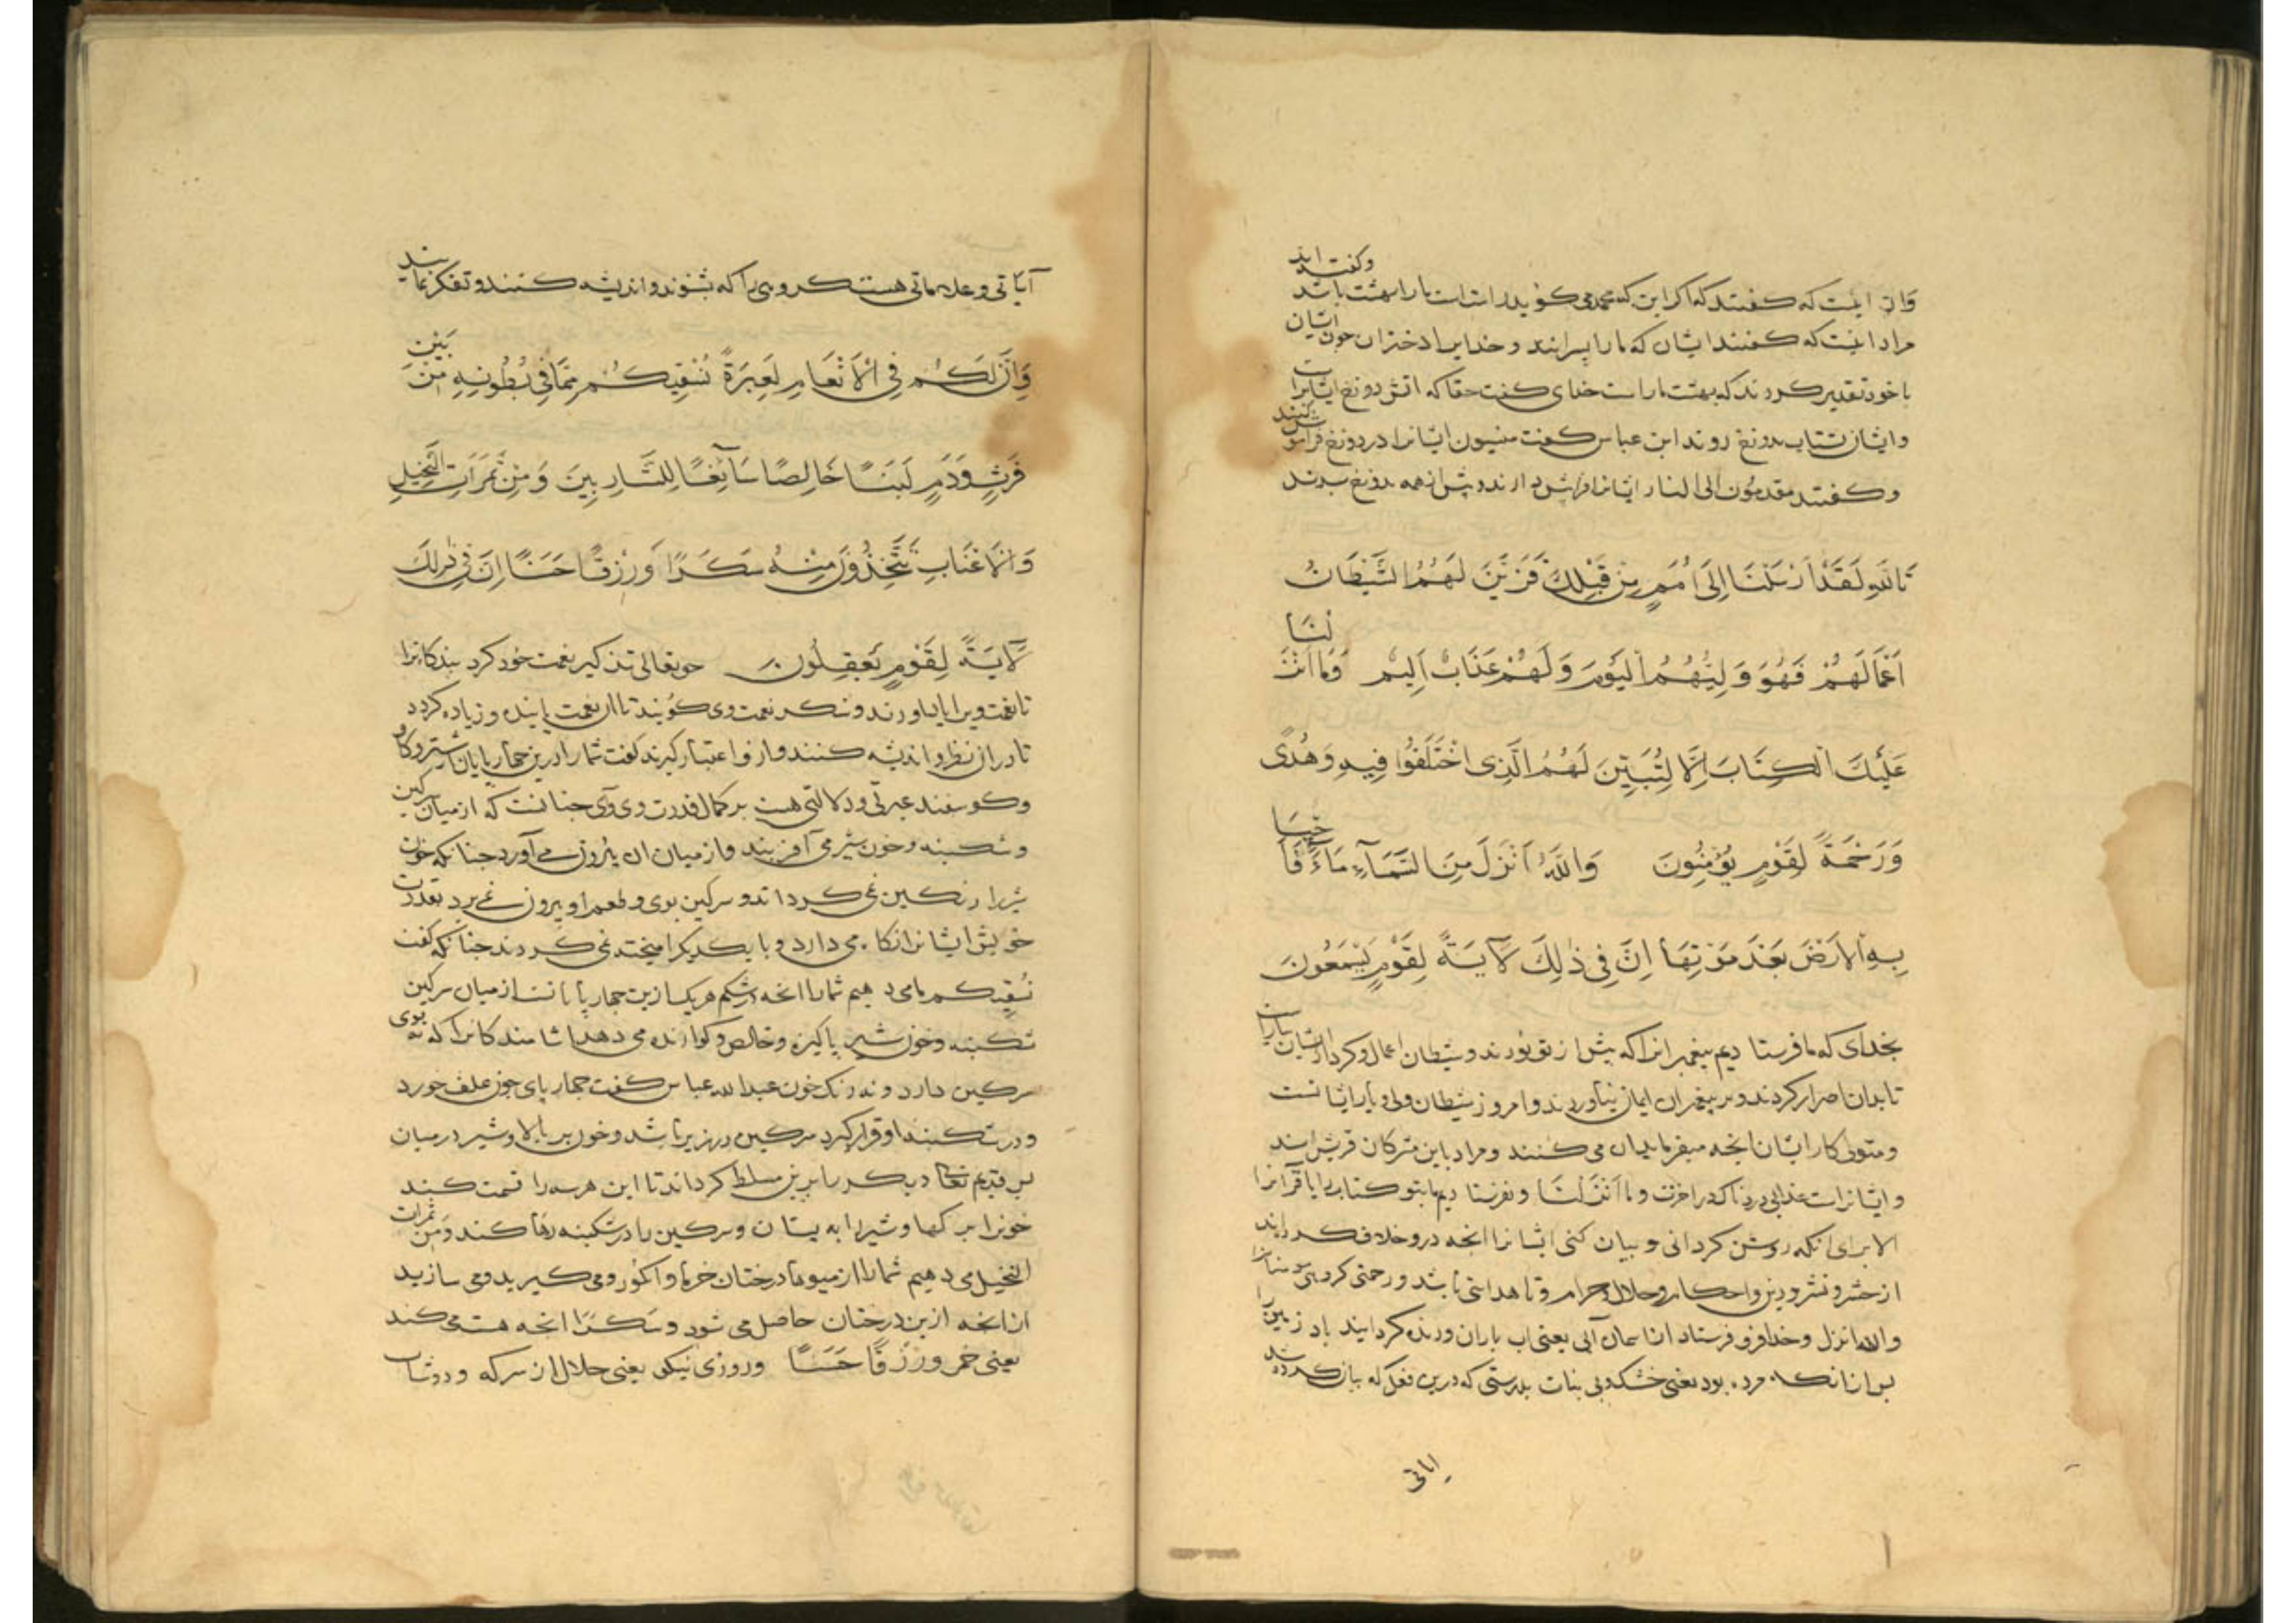 وان اینست که کفتند که اکر این که محمد می کوید راست است ما را بهشت باشد وکفته اند
مراد اینست که کفتند ایشان که ما را پسرانند و خدایرا دختران چون ایشان
با خود تقدیر کردند که بهشت ما راست خدای کفت حقا که اتش دوزخ ایشانراست
وایشان شتاب بدوزخ روند ابن عباس کفت منسیون ایشانرا در دوزخ فراموش کنند
وکفتند مقدمون الی النار ایشانرا فرا پیش دارند و پیش از همه بدوزخ برند
تَاللّٰهِ لَقَدْ اَرْسَلْنَا اِلَى اُمَمٍ مِنْ قَبْلِكَ فَزَيَّنَ لَهُمُ الشَّيْطَانُ
اَعْمَالَهُمْ فَهُوَ وَلِيُّهُمُ الْيَوْمَ وَلَهُمْ عَذَابٌ اَلِيمٌ وَمَا اَنْزَلْنَا
عَلَيْكَ الْكِتَابَ اِلَّا لِتُبَيِّنَ لَهُمُ الَّذِى اخْتَلَفُوا فِيهِ وَهُدًى
وَرَحْمَةً لِقَوْمٍ يُؤْمِنُونَ وَاللّٰهُ اَنْزَلَ مِنَ السَّمَآءِ مَاءً فَاَحْيَا
بِهِ الْاَرْضَ بَعْدَ مَوْتِهَا اِنَّ فِى ذٰلِكَ لَآيَةً لِقَوْمٍ يَسْمَعُونَ
بخدای که ما فرستادیم پیغمبرانرا که پیش از تو بودند و شیطان اعمال و کردار ایشان بیاراست
تا بدان اصرار کردند و بر پیغمبران ایمان نیاوردند و امروز شیطان ولی و یار ایشانست
ومتولی کار ایشان انچه میفرماید ان می کنند ومراد باین مشرکان قریش اند
وایشانراست عذابی دردناک در اخرت وما انزلنا ونفرستادیم ما بتو کتاب را یا قرآنرا
الا برای انکه روشن کردانی و بیان کنی ایشانرا انچه درو خلاف کرده اند
از حشر و نشر ودین واحکام وحلال وحرام و تا هدایتی باشد ورحمتی کروهی مؤمنانرا
والله انزل وخدا فرو فرستاد از اسمان آبی یعنی اب باران وزنده کردانید باو زمین را
پس از انکه مرده بود یعنی خشک وبی نبات بدرستی که درین فعل که بیان کرده شد
ایاتی
آیاتی وعلاماتی هست کروهی را که بشنوند واندیشه کنند وتفکر نمایند
وَاِنَّ لَكُمْ فِى الْاَنْعَامِ لَعِبْرَةً نُسْقِيكُمْ مِمَّا فِى بُطُونِهِ مِنْ بَيْنِ
فَرْثٍ وَدَمٍ لَبَنًا خَالِصًا سَآئِغًا لِلشَّارِبِينَ وَمِنْ ثَمَرَاتِ النَّخِيلِ
وَالْاَعْنَابِ تَتَّخِذُونَ مِنْهُ سَكَرًا وَرِزْقًا حَسَنًا اِنَّ فِى ذٰلِكَ
لَآيَةً لِقَوْمٍ يَعْقِلُونَ حق تعالی تذکیر نعمت خود کرد بندکانرا
تا نعمت ویرا یاد اورند وشکر نعمت وی کویند تا ان نعمت پاینده وزیاده کردد
تا دران نظر واندیشه کنند وازو اعتبار کیرند کفت شما را درین چهارپایان شتر وکاو
وکوسفند عبرتی ودلالتی هست بر کمال قدرت وی وآی چنانست که از میان سرکین
وشکنبه وخون شیر می آفریند واز میان ان بیرون می آورد چنانکه خون
شیر را رنکین نمی کرداند وسرکین بوی وطعم او بیرون نمی برد بقدرت
خویش ایشانرا نکاه می دارد وبا یکدیکر امیخته نمی کردند چنانکه کفت
نسقیکم ما می دهیم شما را انچه در شکم هر یک ازین چهارپایانست از میان سرکین
شکنبه وخون شیر پاکیزه وخالص وکوارنده می دهد اشامندکانرا که نه بوی
سرکین دارد ونه رنک خون عبدالله عباس کفت چهارپای چون علف خورد
ودر شکنبه او قرار کیرد سرکین در زیر باشد وخون بر بالا وشیر در میان
پس قدیم تعالی جکر را برین مسلط کرداند تا این هر سه را قسمت کند
خونرا برکها وشیر را به پستان وسرکین را در شکنبه رها کند ومن ثمرات
النخیل می دهیم شما را از میوهاء درختان خرما و انکور ومی کیرید ومی سازید
ازانچه ازین درختان حاصل می شود وسَكَرًا انچه مست می کند
یعنی خمر وَرِزْقًا حَسَنًا وروزی نیکو یعنی حلال از سرکه ودوشاب